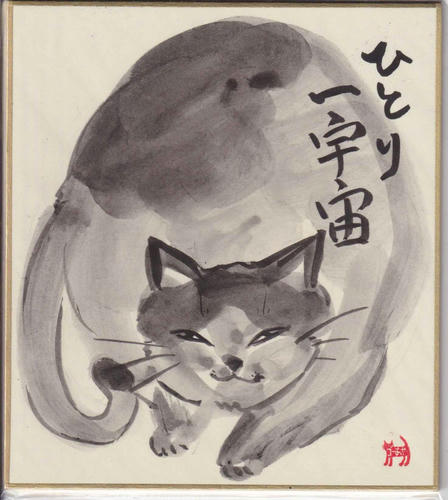 ひとり
一宇宙